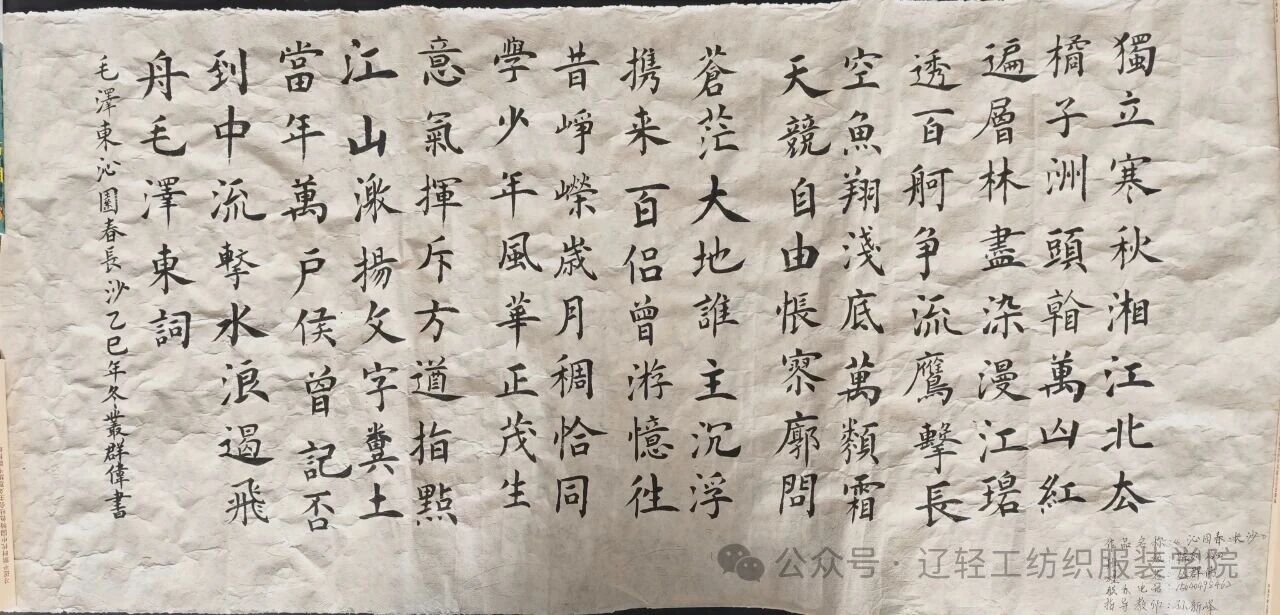 獨立寒秋湘江北去
橘子洲頭看萬山紅
遍層林盡染漫江碧
透百舸争流鷹擊長
空魚翔淺底萬類霜
天競自由悵寥廓問
蒼茫大地誰主沉浮
携来百侣曾游憶往
昔崢嶸歲月稠恰同
學少年風華正茂生
意氣揮斥方遒指點
江山激揚文字糞土
當年萬户侯曾記否
到中流擊水浪遏飛
舟毛澤東詞
毛澤東沁園春長沙乙巳年冬叢群偉書
作品名称:《沁园春·长沙》
指导教师:
公众号·辽轻工纺织服装学院